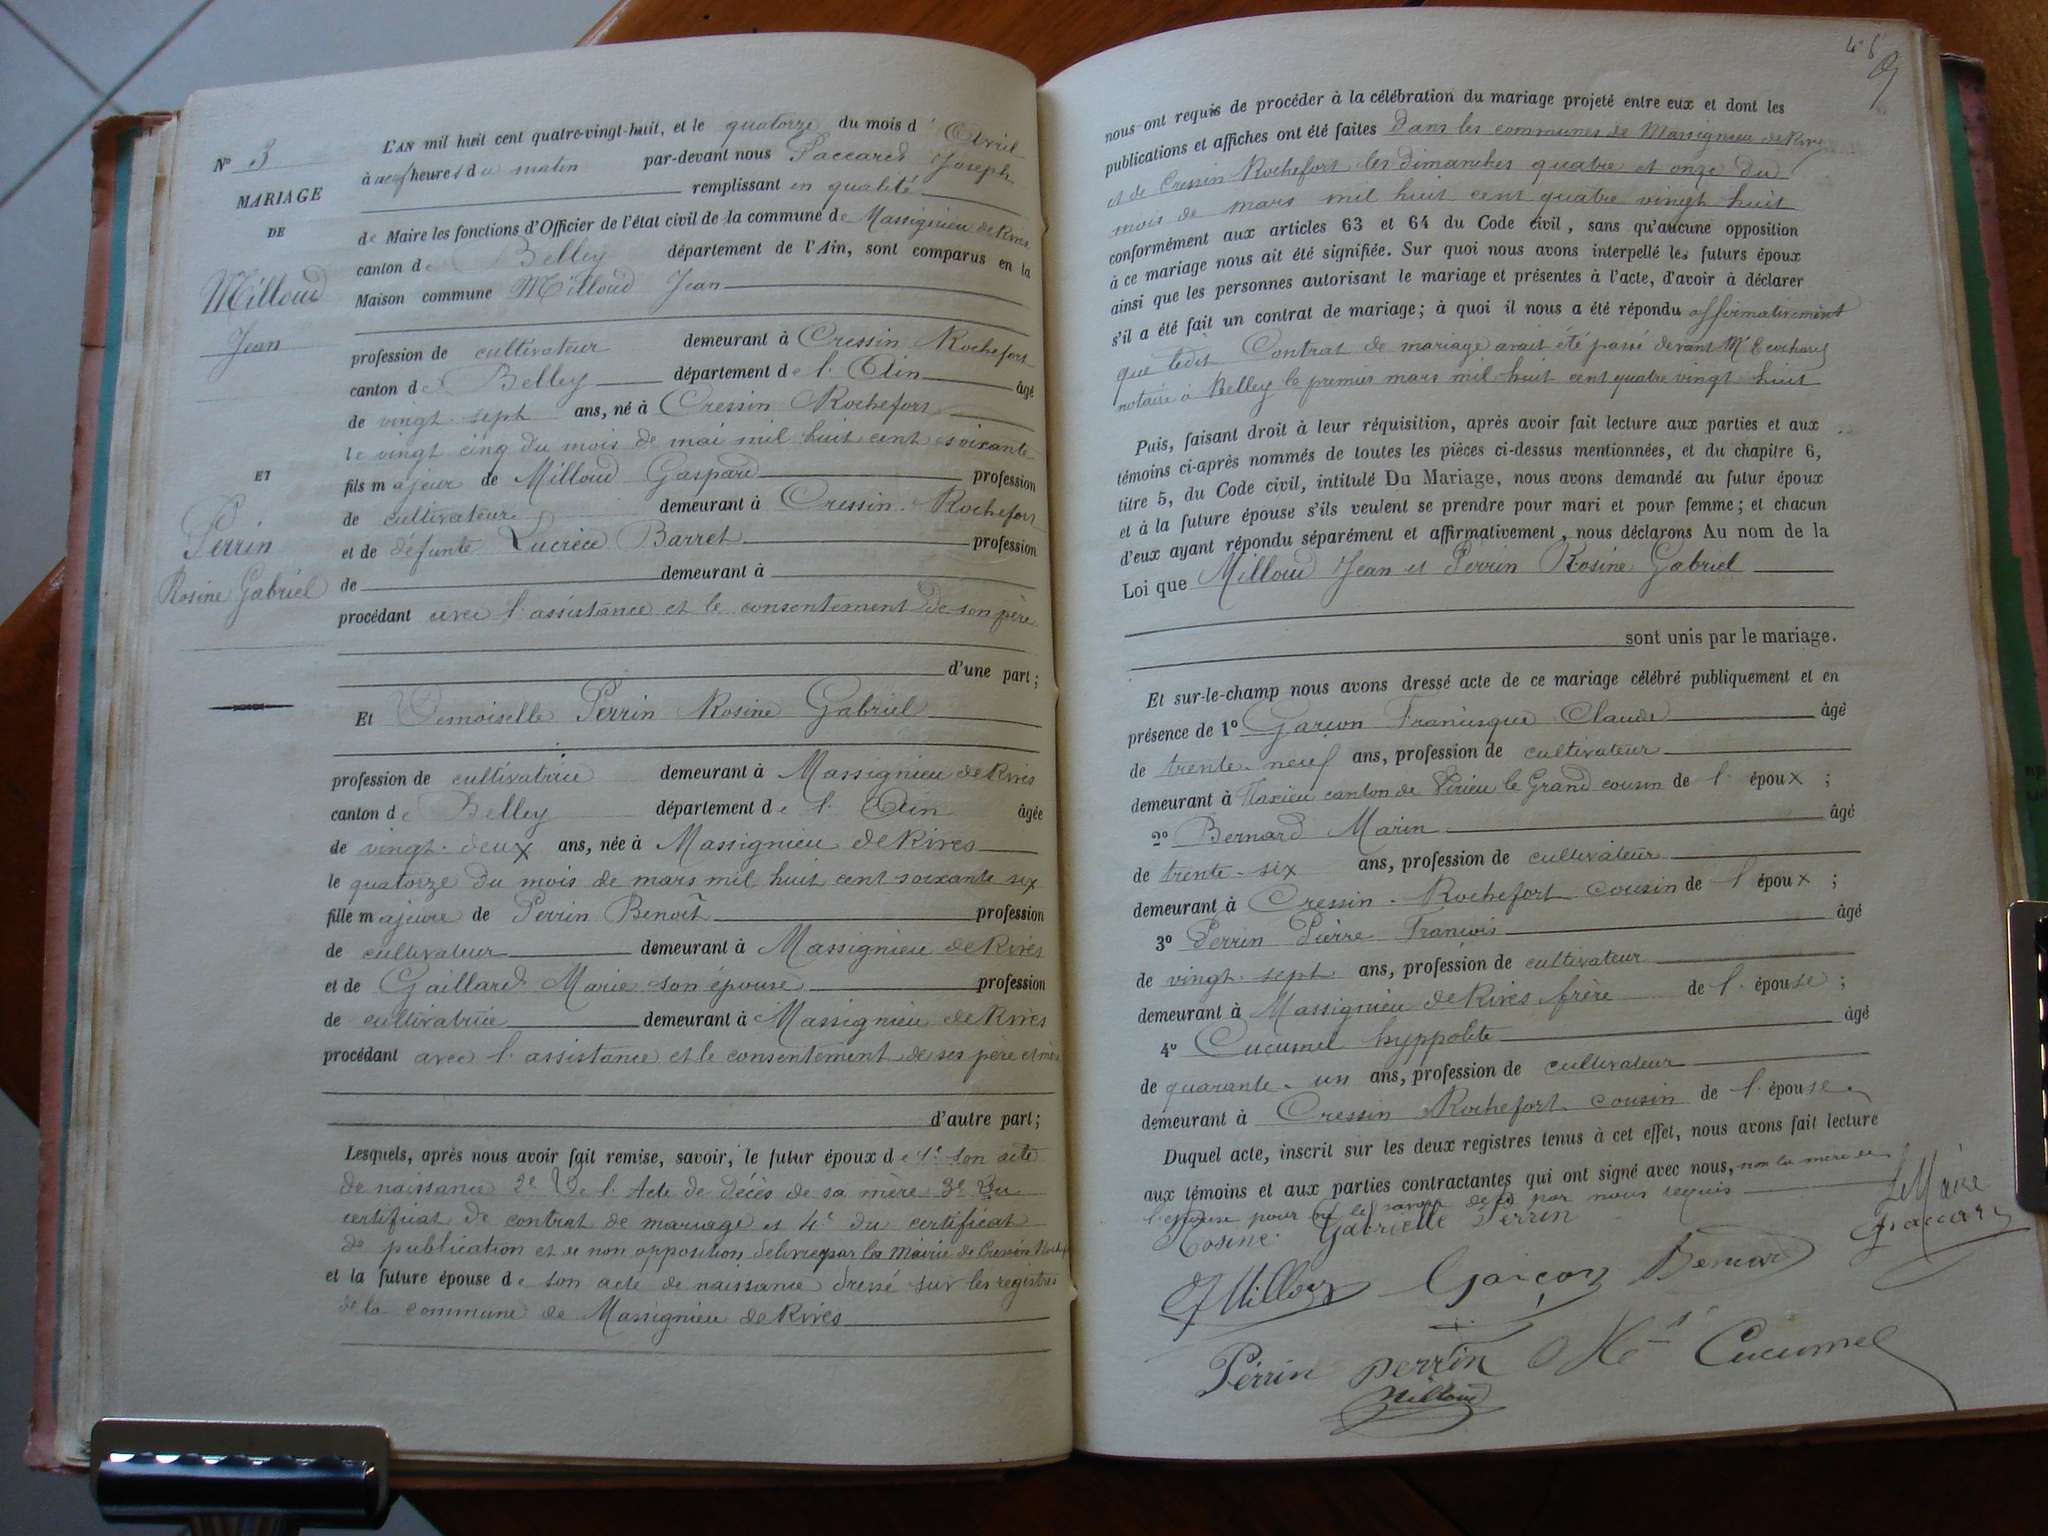 N° 3
MARIAGE
DE
Milloud
Jean
ET
Perrin
Rosine Gabriel
L'AN mil huit cent quatre-vingt-huit, et le quatorze du mois d' Avril
à neuf heures du matin par-devant nous Paccard Joseph
remplissant en qualité
de Maire les fonctions d'Officier de l'état civil de la commune de Massignieu de Rives
canton de Belley département de l'Ain, sont comparus en la
Maison commune Milloud Jean
profession de cultivateur demeurant à Cressin Rochefort
canton de Belley département de l'Ain âgé
de vingt-sept ans, né à Cressin Rochefort
le vingt cinq du mois de mai mil huit cent soixante
fils majeur de Milloud Gaspard profession
de cultivateur demeurant à Cressin-Rochefort
et de défunte Lucrèce Barret profession
de demeurant à
procédant avec l'assistance et le consentement de son père
d'une part;
Et Demoiselle Perrin Rosine Gabriel
profession de cultivatrice demeurant à Massignieu de Rives
canton de Belley département de l'Ain âgée
de vingt-deux ans, née à Massignieu de Rives
le quatorze du mois de mars mil huit cent soixante six
fille majeure de Perrin Benoît profession
de cultivateur demeurant à Massignieu de Rives
et de Gaillard Marie son épouse profession
de cultivatrice demeurant à Massignieu de Rives
procédant avec l'assistance et le consentement de ses père et mère
d'autre part;
Lesquels, après nous avoir fait remise, savoir, le futur époux de 1° son acte
de naissance 2° de l'Acte de décès de sa mère 3° du
certificat de contrat de mariage et 4° du certificat
de publication et de non opposition délivré par la Mairie de Cressin Rochefort
et la future épouse de son acte de naissance dressé sur les registres
de la commune de Massignieu de Rives
nous ont requis de procéder à la célébration du mariage projeté entre eux et dont les
publications et affiches ont été faites dans les communes de Massignieu de Rives
et de Cressin Rochefort les dimanches quatre et onze du
mois de mars mil huit cent quatre vingt huit
conformément aux articles 63 et 64 du Code civil, sans qu'aucune opposition
à ce mariage nous ait été signifiée. Sur quoi nous avons interpellé les futurs époux
ainsi que les personnes autorisant le mariage et présentes à l'acte, d'avoir à déclarer
s'il a été fait un contrat de mariage; à quoi il nous a été répondu affirmativement
que ledit Contrat de mariage avait été passé devant Me
notaire à Belley le premier mars mil huit cent quatre vingt huit
Puis, faisant droit à leur réquisition, après avoir fait lecture aux parties et aux
témoins ci-après nommés de toutes les pièces ci-dessus mentionnées, et du chapitre 6,
titre 5, du Code civil, intitulé Du Mariage, nous avons demandé au futur époux
et à la future épouse s'ils veulent se prendre pour mari et pour femme; et chacun
d'eux ayant répondu séparément et affirmativement, nous déclarons Au nom de la
Loi que Milloud Jean et Perrin Rosine Gabriel
sont unis par le mariage.
Et sur-le-champ nous avons dressé acte de ce mariage célébré publiquement et en
présence de 1° Garçon Francisque Claude âgé
de trente-neuf ans, profession de cultivateur
demeurant à Flaxieu canton de Virieu le Grand cousin de l'époux;
2° Bernard Marin âgé
de trente-six ans, profession de cultivateur
demeurant à Cressin-Rochefort cousin de l'époux;
3° Perrin Pierre François âgé
de vingt-sept ans, profession de cultivateur
demeurant à Massignieu de Rives frère de l'épouse;
4° Cucumel hyppolite âgé
de quarante-un ans, profession de cultivateur
demeurant à Cressin Rochefort cousin de l'épouse.
Duquel acte, inscrit sur les deux registres tenus à cet effet, nous avons fait lecture
aux témoins et aux parties contractantes qui ont signé avec nous, non la mère de
l'épouse pour ne le savoir de ce par nous requis
Rosine Gabrielle Perrin
Le Maire
Paccard
J Milloud Garçon Bernard
Perrin perrin Hte Cucumel
Milloud